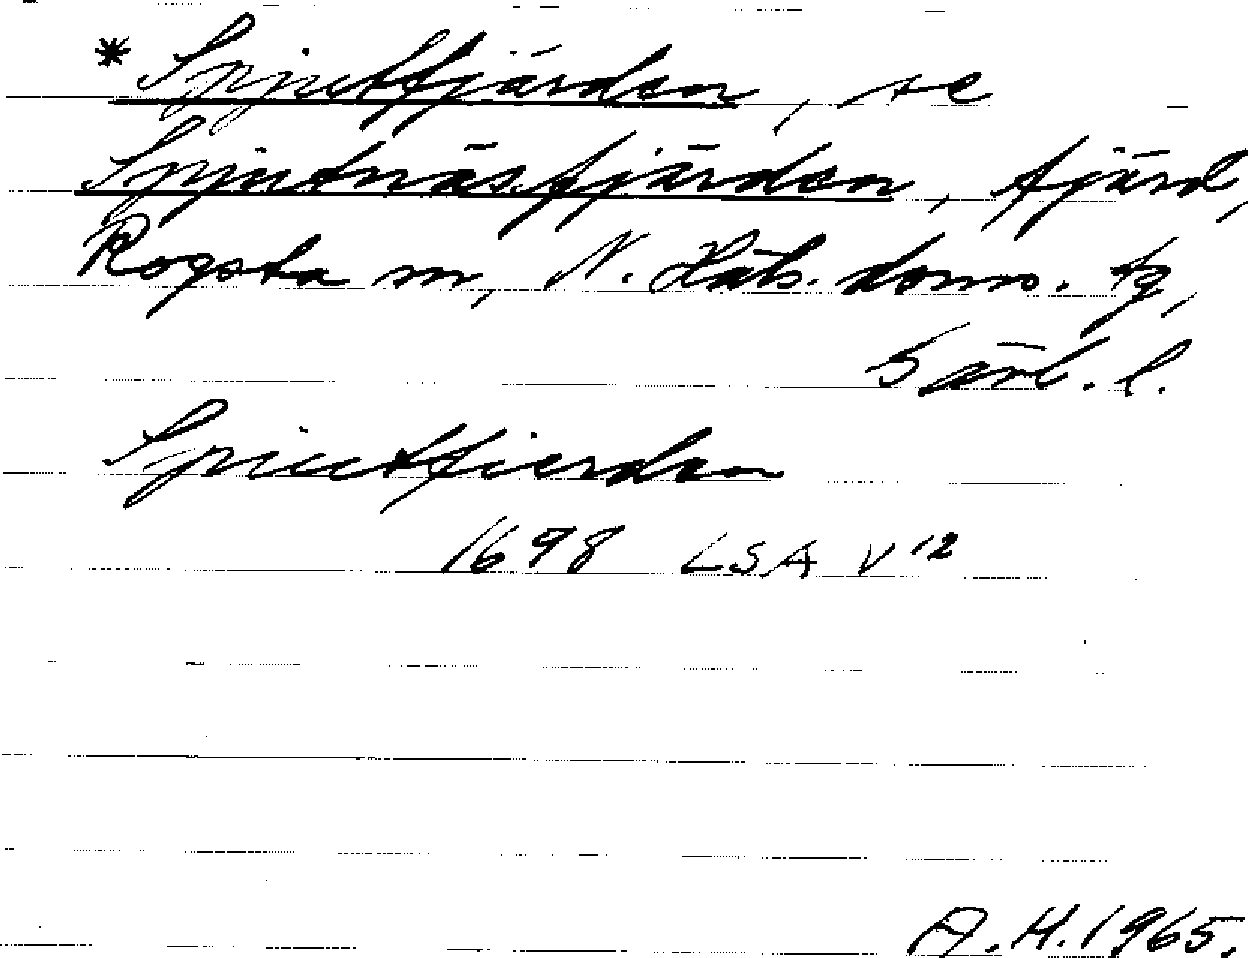 * Spjutfjärden, se
Spjutnäsfjärden, fjärd,
Rogsta sn, N. Häls. doms. tg,
Gävl. l.
Spiutfierden
1698 LSA V 12
A.H. 1965.